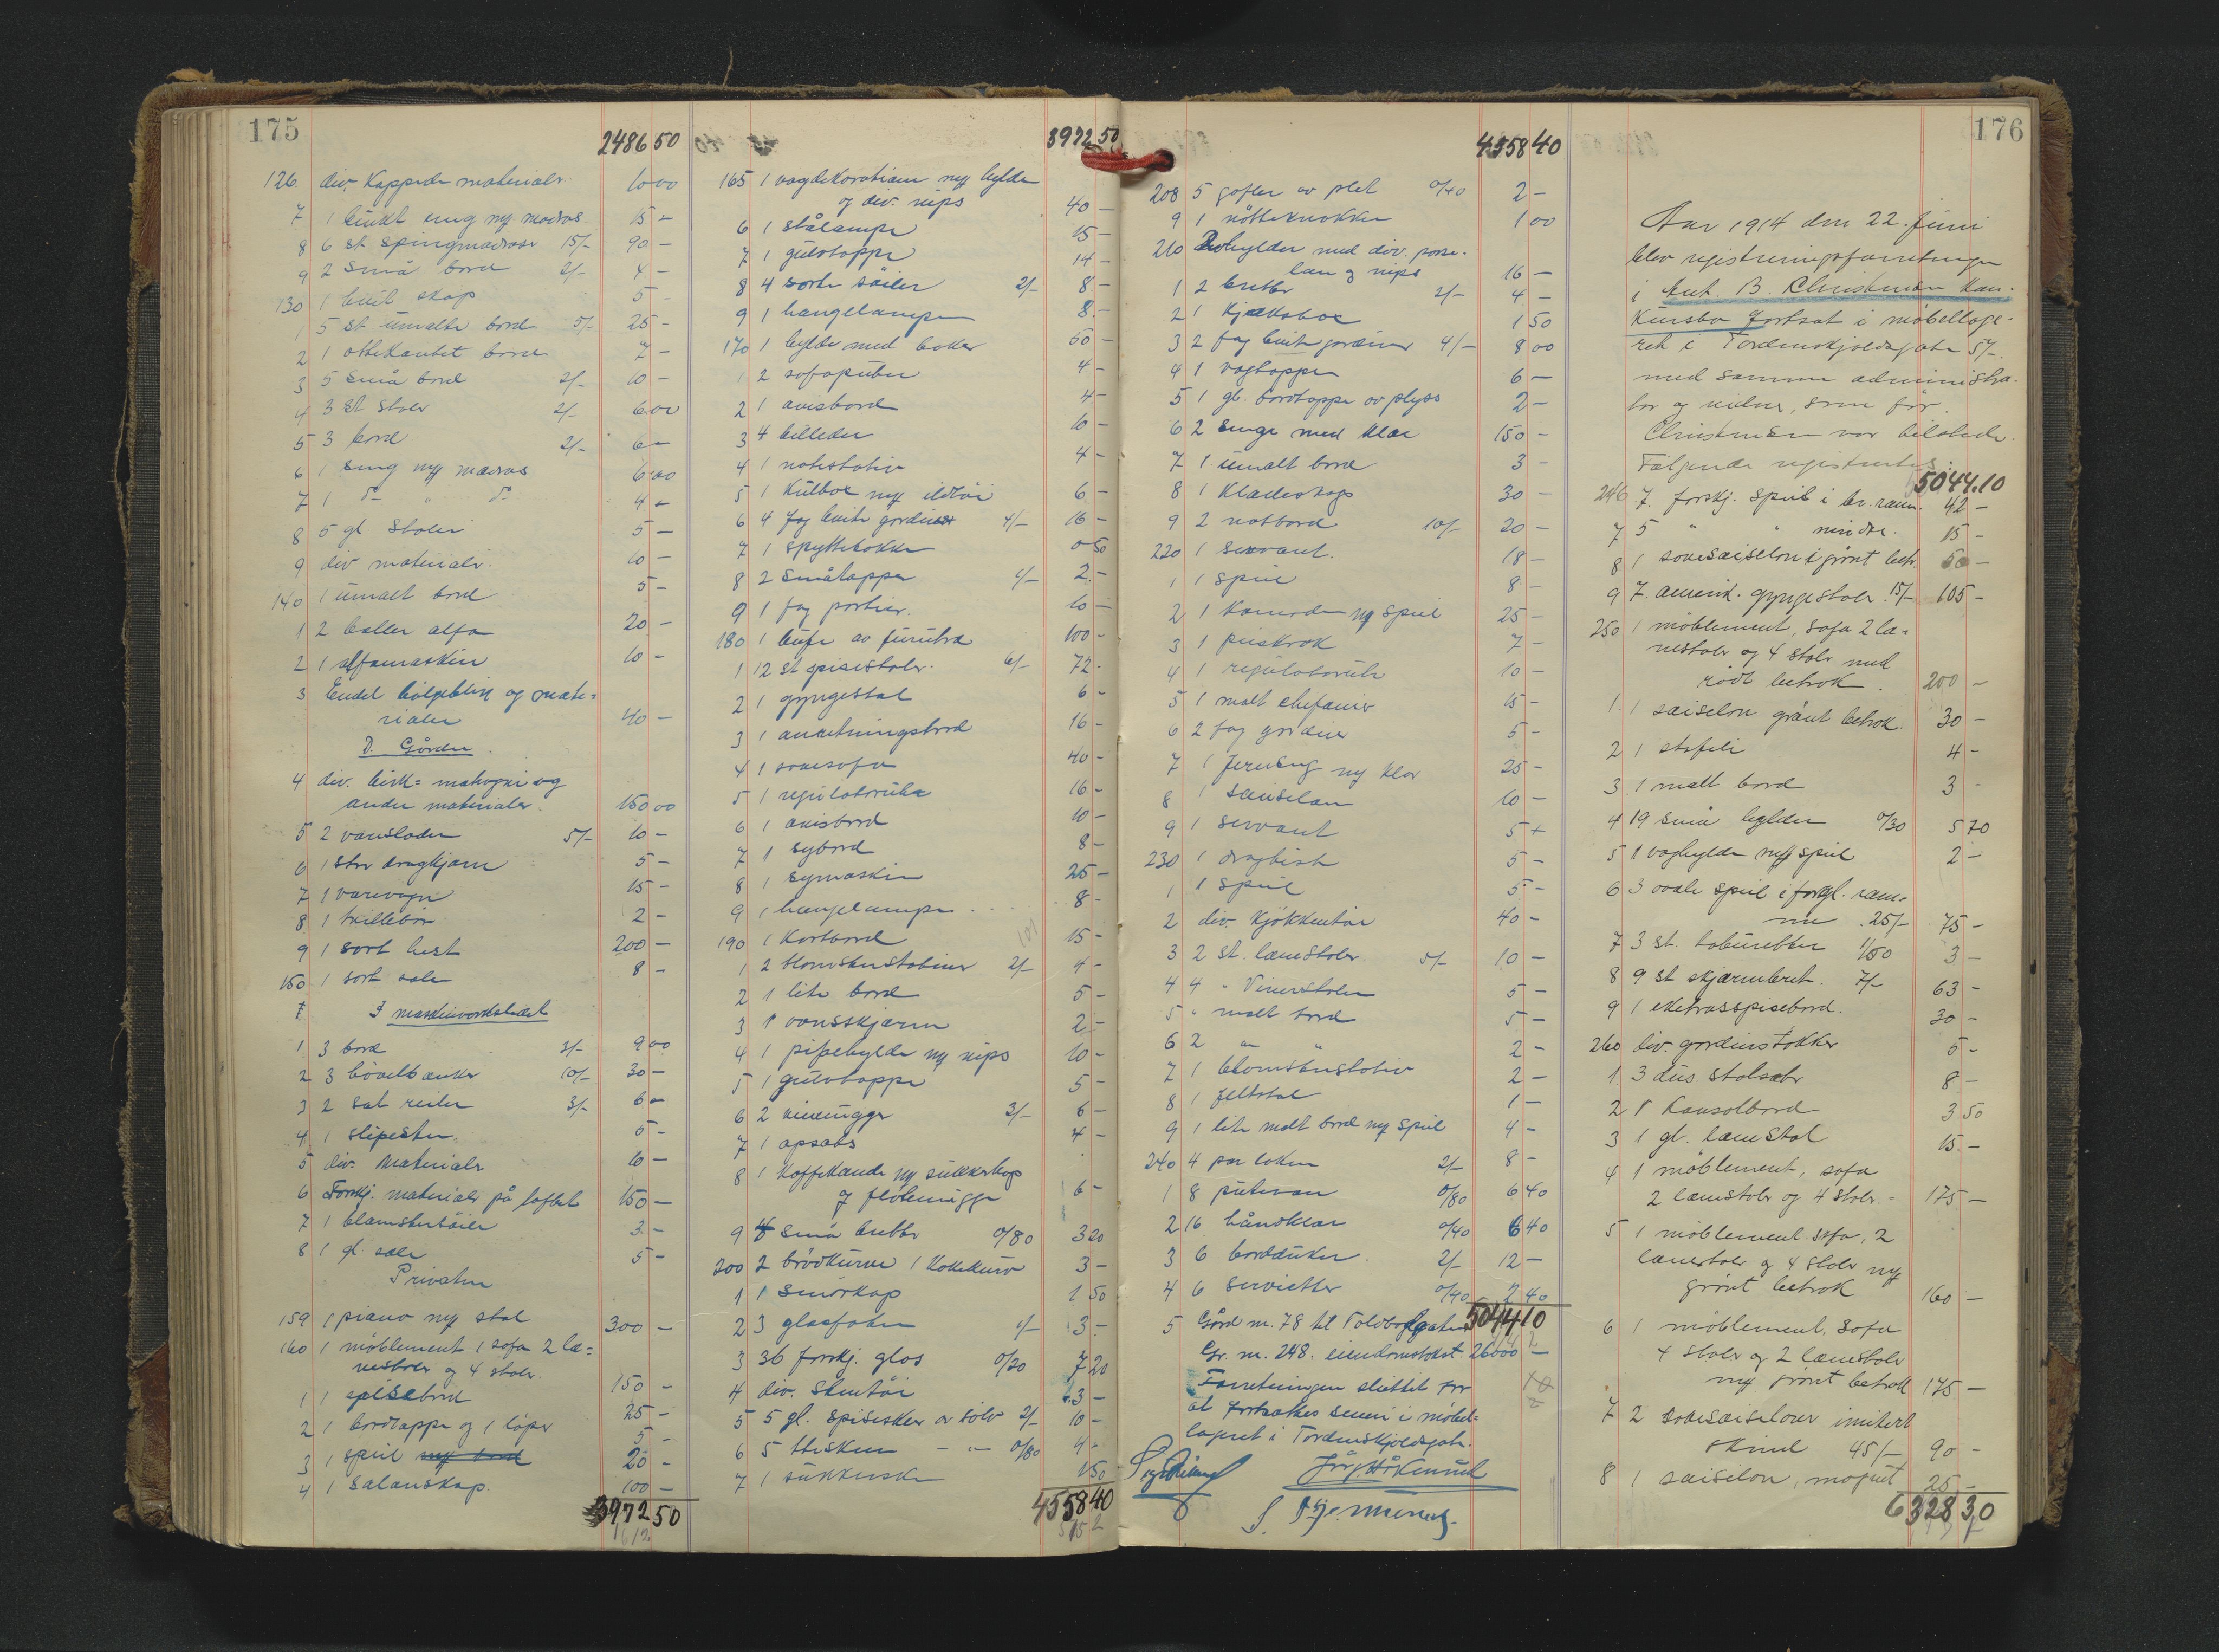 175
2486 50
126. div. Kappede materialer. 10 00
7 1 brukt seng m/ madras 15 –
8 6 st springmadraser 15/– 90 –
9 2 små bord 2/– 4 –
130 1 hvit skap 5 –
1 5 st. umalte bord 5/– 25 –
2 1 ottekantet bord 7 –
3 5 små bord 2/– 10 –
4 3 st stoler 2/– 6 00
5 3 bord 2/– 6 –
6 1 seng m/ madras 6 00
7 1 do " do 4 –
8 5 gl. stoler 5 –
9 div materialer. 10 –
140 1 umalt bord 5 –
1 2 baller alfa 20 –
2 1 alfamaskin 10 –
3 Endel bølgeblik og mate=
rialer 40 –
I. Gården.
4 div. birk= mahogni og
andre materialer. 150 00
5 2 vareslæder 5/– 10 –
6 1 stor dragkjærre 5 –
7 1 varevogn 15 –
8 1 trillebør 2 –
9 1 sort hest 200 –
150 1 sort sæle 8 –
I maskinverkstedet
1 3 bord 3/– 9 00
2 3 høvelbænker 10/– 30 –
3 2 sæt reiler 3/– 6 –
4 1 slipesten 5 –
5 div. materialer 10 –
6 Forskj. materialer på loftet 150 –
7 1 blomstersøile 2 –
8 1 gl. sæle 5 –
Privaten
159 1 piano m/ stol 300 –
160 1 møblement 1 sofa 2 læ=
nestoler og 4 stoler. 150 –
1 1 spisebord 25 –
2 1 bordteppe og 1 løper 5 –
3 1 speil m/ bord 20 –
4 1 salonskap. 100 –
3972 50
3972 50
165 1 vægdekoration m/ hylde
og div. nips 40 –
6 1 stålampe 15 –
7 1 gulvteppe 14 –
8 4 sorte søiler 2/– 8 –
9 1 hængelampe 8 –
170 1 hylde med bøker 50 –
1 2 sofaputer 4 –
2 1 avisbord 4 –
3 4 billeder 10 –
4 1 notestativ 4 –
5 1 kulboks m/ ildtøi 6 –
6 4 fag hvite gardiner 4/– 16 –
7 1 spyttebakke 0 50
8 2 småtepper 1/– 2 –
9 1 fag portier. 10 –
180 1 bufe av furutræ 100 –
1 12 st spisestoler. 6/– 72 –
2 1 gyngestol 6 –
3 1 anretningsbord 16 –
4 1 sovesofa 40 –
5 1 regulatorur 16 –
6 1 avisbord 10 –
7 1 sybord 8 –
8 1 symaskin 25 –
9 1 hængelampe 8 –
190 1 kortbord 15 –
1 2 blomsterstativer 2/– 4 –
2 1 lite bord 5 –
3 1 ovnsskjærm 2 –
4 1 pipehylde m/ nips 10 –
5 1 gulvteppe 5 –
6 2 vinmugger 3/– 6 –
7 1 opsats 4 –
8 1 kaffekande m/ sukkerkop
& fløtemugge 6 –
9 4 små bretter 0/80 3 20
200 2 brødkurve 1 kakekurv 3 –
1 1 smørkop 1 50
2 3 glasfater 1/– 3 –
3 36 forskj. glas 0/20 7 20
4 div. stentøi 3 –
5 5 gl. spiseskeer av sølv 2/– 10 –
6 5 theskeer – " – 0/80 4 –
7 1 sukkerske 1 50
4558 40
4558 40
208 5 gafler av plet 0/40 2 –
9 1 nøtteknekker 1 00
210 2 hylder med div. porse=
læn og nips 16 –
1 2 bretter 2/– 4 –
2 1 kjeksboks 1 50
3 2 fag hvite gardiner 4/– 8 00
4 1 vægteppe 6 –
5 1 gl. bordteppe av plyss 2 –
6 2 senge med klær 150 –
7 1 umalt bord 3 –
8 1 klædeskap 30 –
9 2 natbord 10/– 20 –
220 1 servant. 18 –
1 1 speil 8 –
2 1 komode m/ speil 25 –
3 1 puskrok 7 –
4 1 regulatorur 10 –
5 1 malt chefonier 15 –
6 2 fag gardiner 5 –
7 1 jernseng m/ klær 25 –
8 1 saiselon 10 –
9 1 servant 5 –
230 1 dragkiste 5 –
1 1 speil 5 –
2 div. kjøkkentøi 40 –
3 2 st. lænestoler. 5/– 10 –
4 4 " Vinerstoler 5 –
5 " malt bord 5 –
6 2 " " 2 –
7 1 blomsterstativ 2 –
8 1 feltstol 1 –
9 1 lite malt bord m/ speil 4 –
240 4 par laken 2/– 8 –
1 8 putevar 0/80 6 40
2 16 håndklær 0/40 6 40
3 6 bordduker. 2/– 12 –
4 6 servietter 0/40 2 40
5044 10
5 Gård nr. 78 til Toldbodgaten
Gr. nr. 248. eiendomstakst 26000 –
Forretningen sluttet for
at fortsættes senere i møbel=
lageret i Tordenskjoldsgate.
176
Aar 1914 den 22. juni
blev registreringsforretningen
i Ant. B. Christensen Kon=
kursbo fortsat i møbellage=
ret i Tordenskjoldsgate 5/–
med samme administra=
tor og vidner, som før.
Christensen var tilstede.
Følgende registrertes:
5044.10
246 7. forskj. speil i br. ram. 42 –
7 5 " " mindre. 15 –
8 1 sovesaiselon i grønt betr. 50 –
9 7. amerik. gyngestoler. 15/– 105 –
250 1 møblement, sofa 2 læ=
nestoler og 4 stoler med
rødt betræk. 200 –
1 1 saiselon grønt betræk. 30 –
2 1 stafeli 4 –
3 1 malt bord 3 –
4 19 små hylder 0/30 5 70
5 1 væghylde m/ speil 2 –
6 3 ovale speil i forgl. ram=
me 25/– 75 –
7 3 st. taburetter 1/00 3 –
8 9 st skjærmbret. 7/– 63 –
9 1 eketræsspisebord. 30 –
260 div. gardinstokker 5 –
1 3 dus stolsæter 8 –
2 1 konsolbord 3 50
3 1 gl. lænestol 15 –
4 1 møblement, sofa
2 lænestoler og 4 stoler = 175 –
5 1 møblement sofa, 2
lænestoler og 4 stoler m/
grønt betræk 160 –
6 1 møblement, sofa
4 stoler og 2 lænestoler
m/ grønt betræk 175 –
7 2 sovesaiseloner imitert
skind 45/– 90 –
8 1 saiselon, moquet 25 –
6328 30